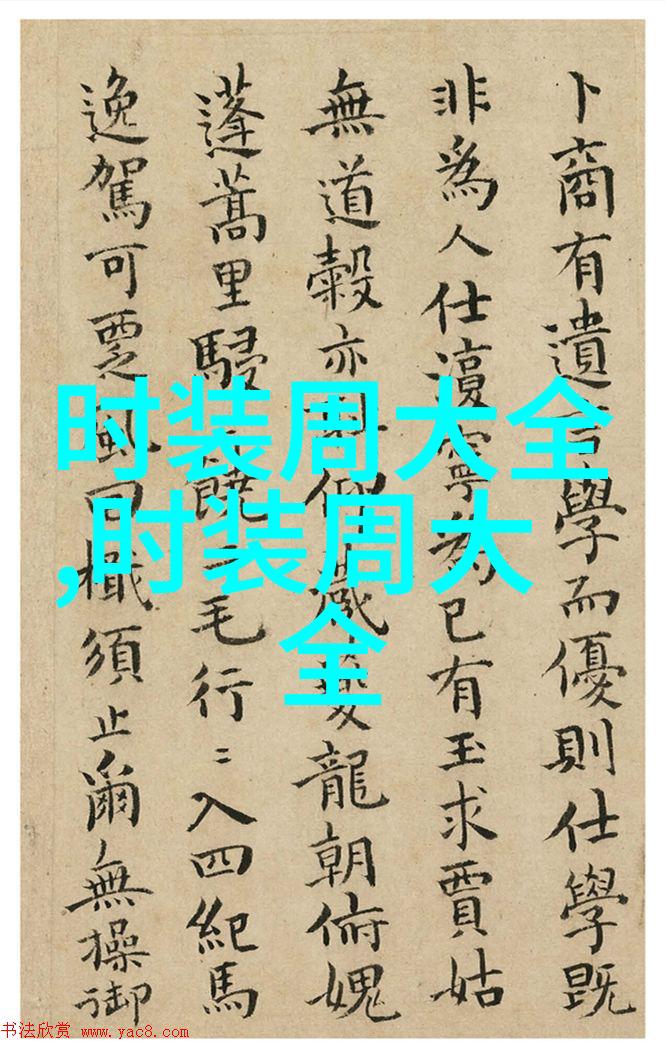 卜商有遺言學而優則仕學既
非為人仕湏寧為己有玉求賈姑
無道穀亦仰龍朝俯媿
蓬蒿里饒二毛行〻入四紀馬
逸駕可覂風須止爾無操御
时装周大全
,时装周大
全
书法欣赏 www.yac8.com